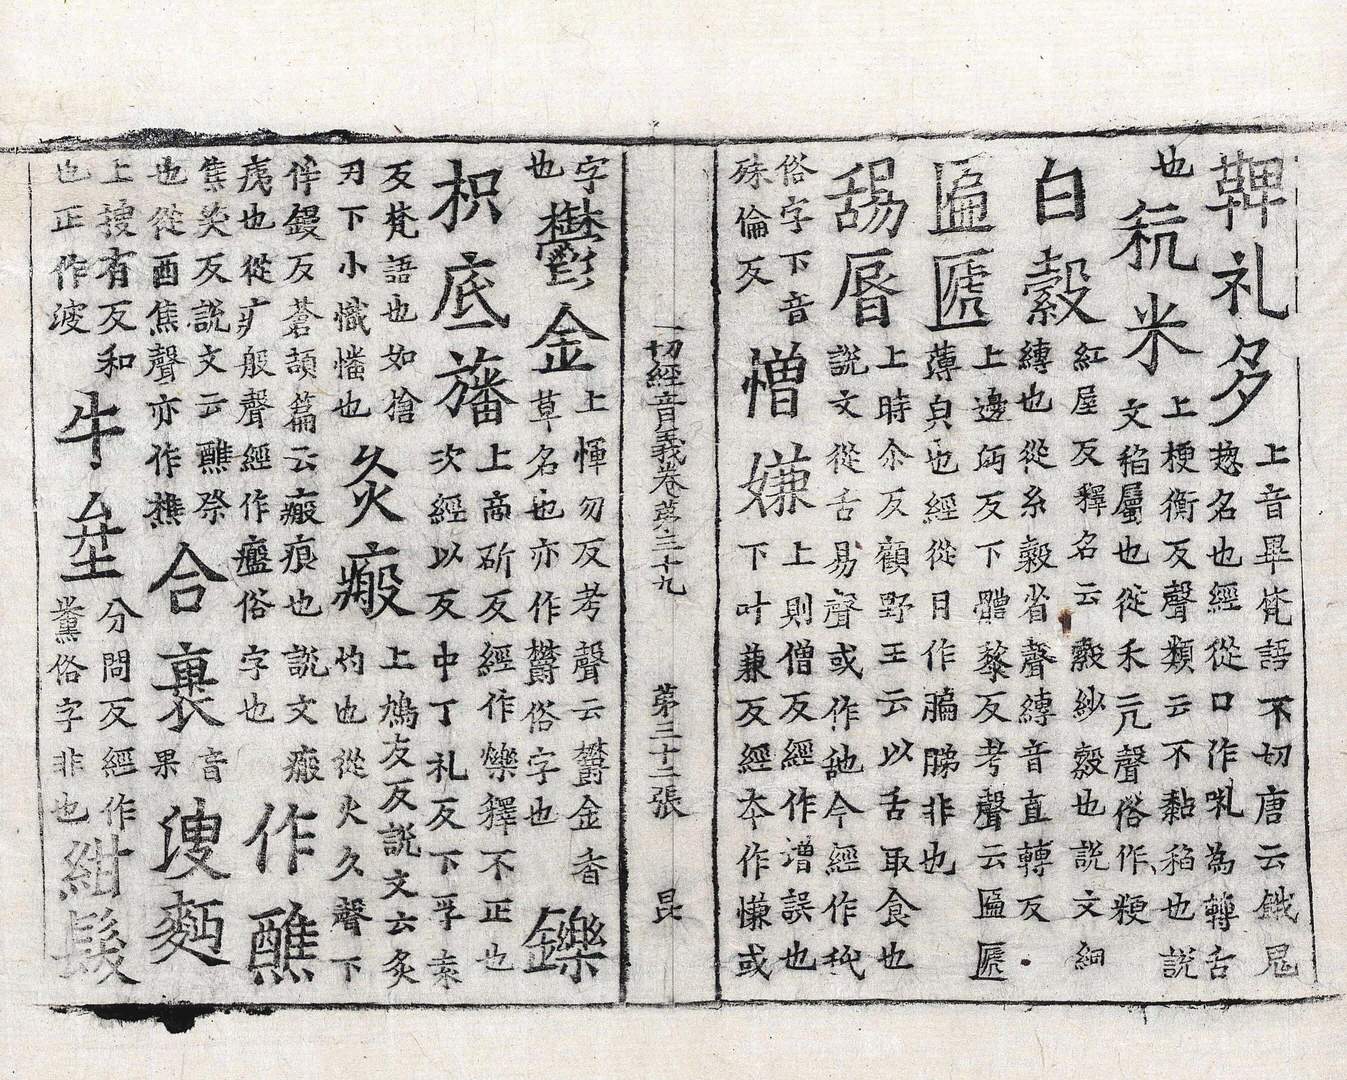 鞞礼多
上音畢梵語不切唐云餓鬼
揔名也經從口作𠯙為轉舌
也
秔米
上梗衡反聲類云不黏稻也説
文稻屬也從禾亢聲俗作粳
白縠
紅屋反釋名云縠紗縠也説文細
縳也從糸縠省聲縳音直轉反
匾㔸
上邊沔反下體黎反考聲云匾㔸
薄皃也經從月作膈䏲非也
舓脣
上時尒反顧野王云以舌取食也
説文從舌易聲或作𦧇今經作
俗字下音
殊倫反
憎嫌
上則僧反經作譄誤也
下叶兼反經本作慊或
一切經音義卷苐三十九 第三十二張 昆
字
也
鬱金
上惲勿反考聲云欝金香
草名也亦作欝俗字也
鑠
枳底旛
上商斫反經作爍釋不正也
次經以反中丁礼反下孚袁
反梵語也如搶
刃下小幟幡也
灸瘢
上鳩友反説文云灸
灼也從火久聲下
伴鏝反蒼頡篇云瘢痕也説文瘢
痍也從疒般聲經作𤺏俗字也
作醮
焦笑反説文云醮祭
也從酉焦聲亦作樵
合裹
音
果
溲麪
上搜有反和
也正作㴑
牛坌
分問反經作
俗字非也
紺髮